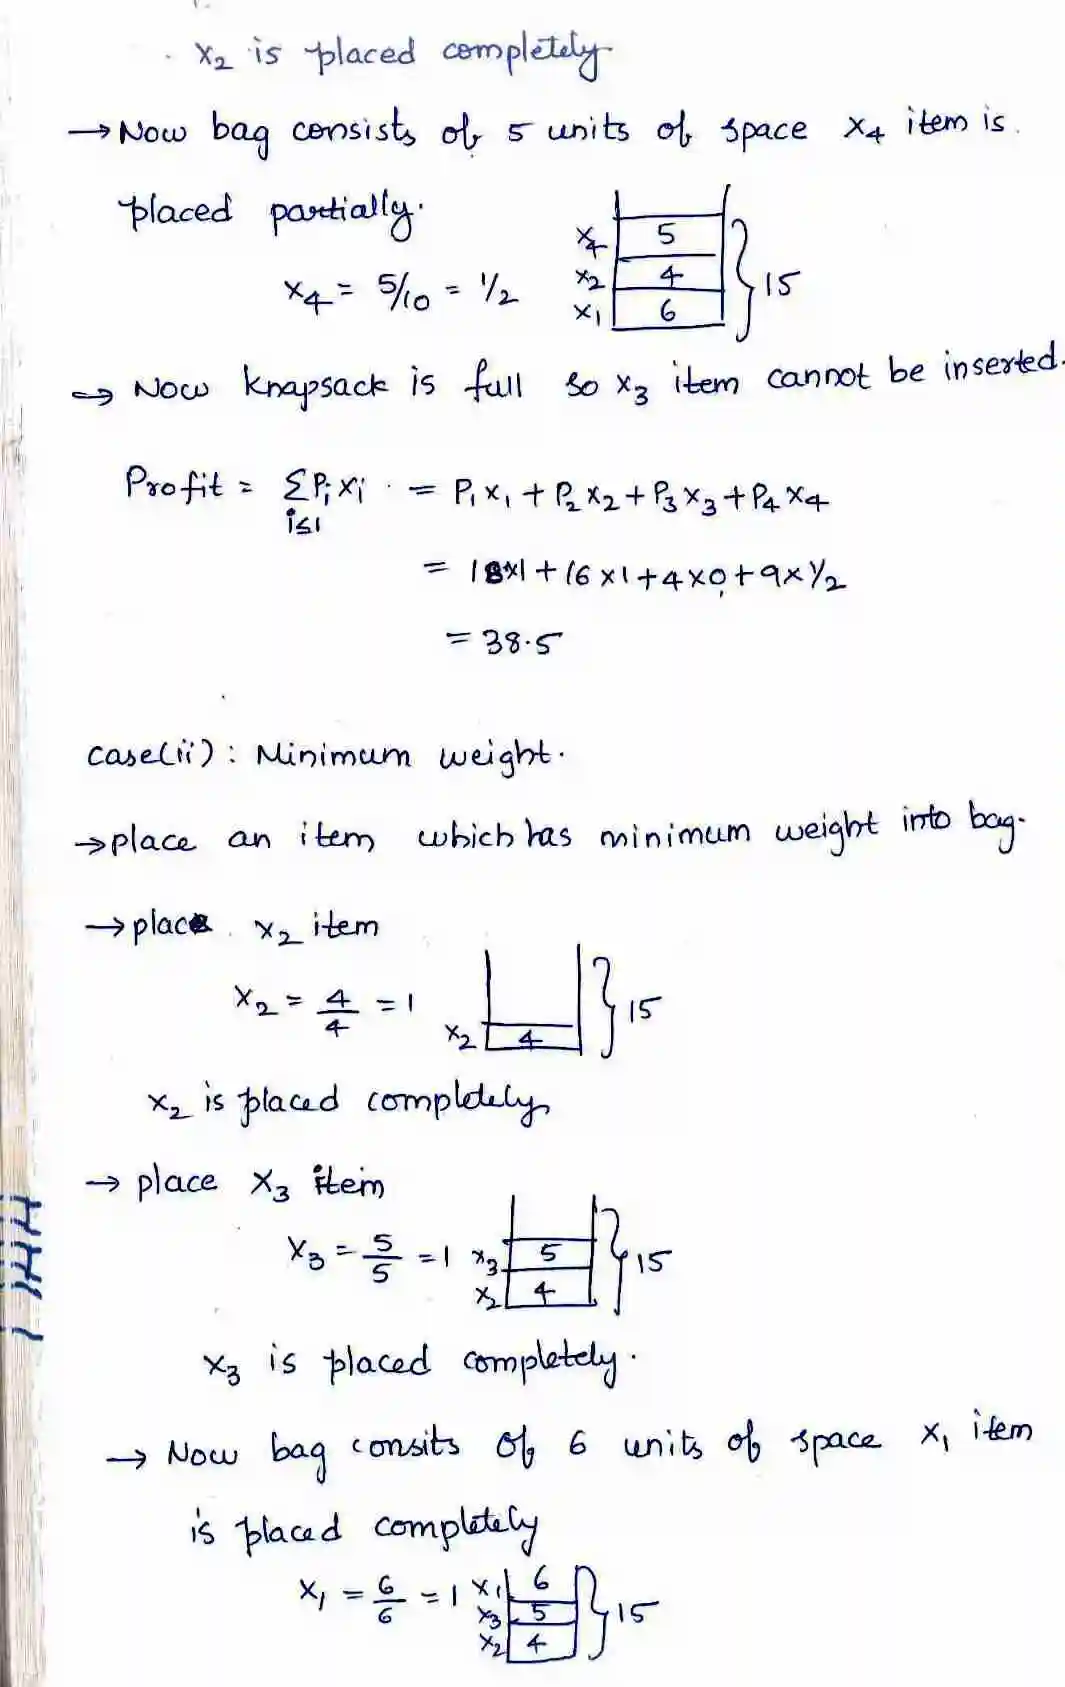 x₂ is placed completely
→ Now bag consists of 5 units of space x₄ item is
placed partially.
x₄ 5
x₂ 4
x₁ 6
15
x₄ = 5/10 = 1/2
→ Now knapsack is full so x₃ item cannot be inserted.
Profit = Σ Pᵢ xᵢ = P₁ x₁ + P₂ x₂ + P₃ x₃ + P₄ x₄
i≤1
= 18×1 + 16×1 + 4×0 + 9×1/2
= 38.5
case(ii): Minimum weight.
→ place an item which has minimum weight into bag.
→ place x₂ item
x₂ = 4/4 = 1
x₂ 4
15
x₂ is placed completely
→ place x₃ item
x₃ = 5/5 = 1
x₃ 5
x₂ 4
15
x₃ is placed completely.
→ Now bag consits of 6 units of space x₁ item
is placed completely
x₁ = 6/6 = 1
x₁ 6
x₃ 5
x₂ 4
15